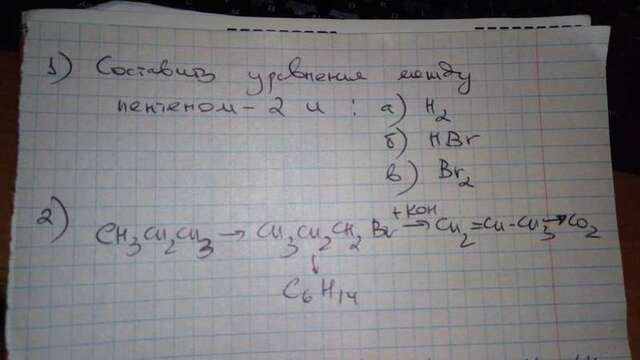 1) Составить уравнения между
пентеном-2 и : а) H2
б) HBr
в) Br2
2) CH3CH2CH3 → CH3CH2CH2Br +KOH → CH2=CH-CH3 → CO2
↓
C6H14